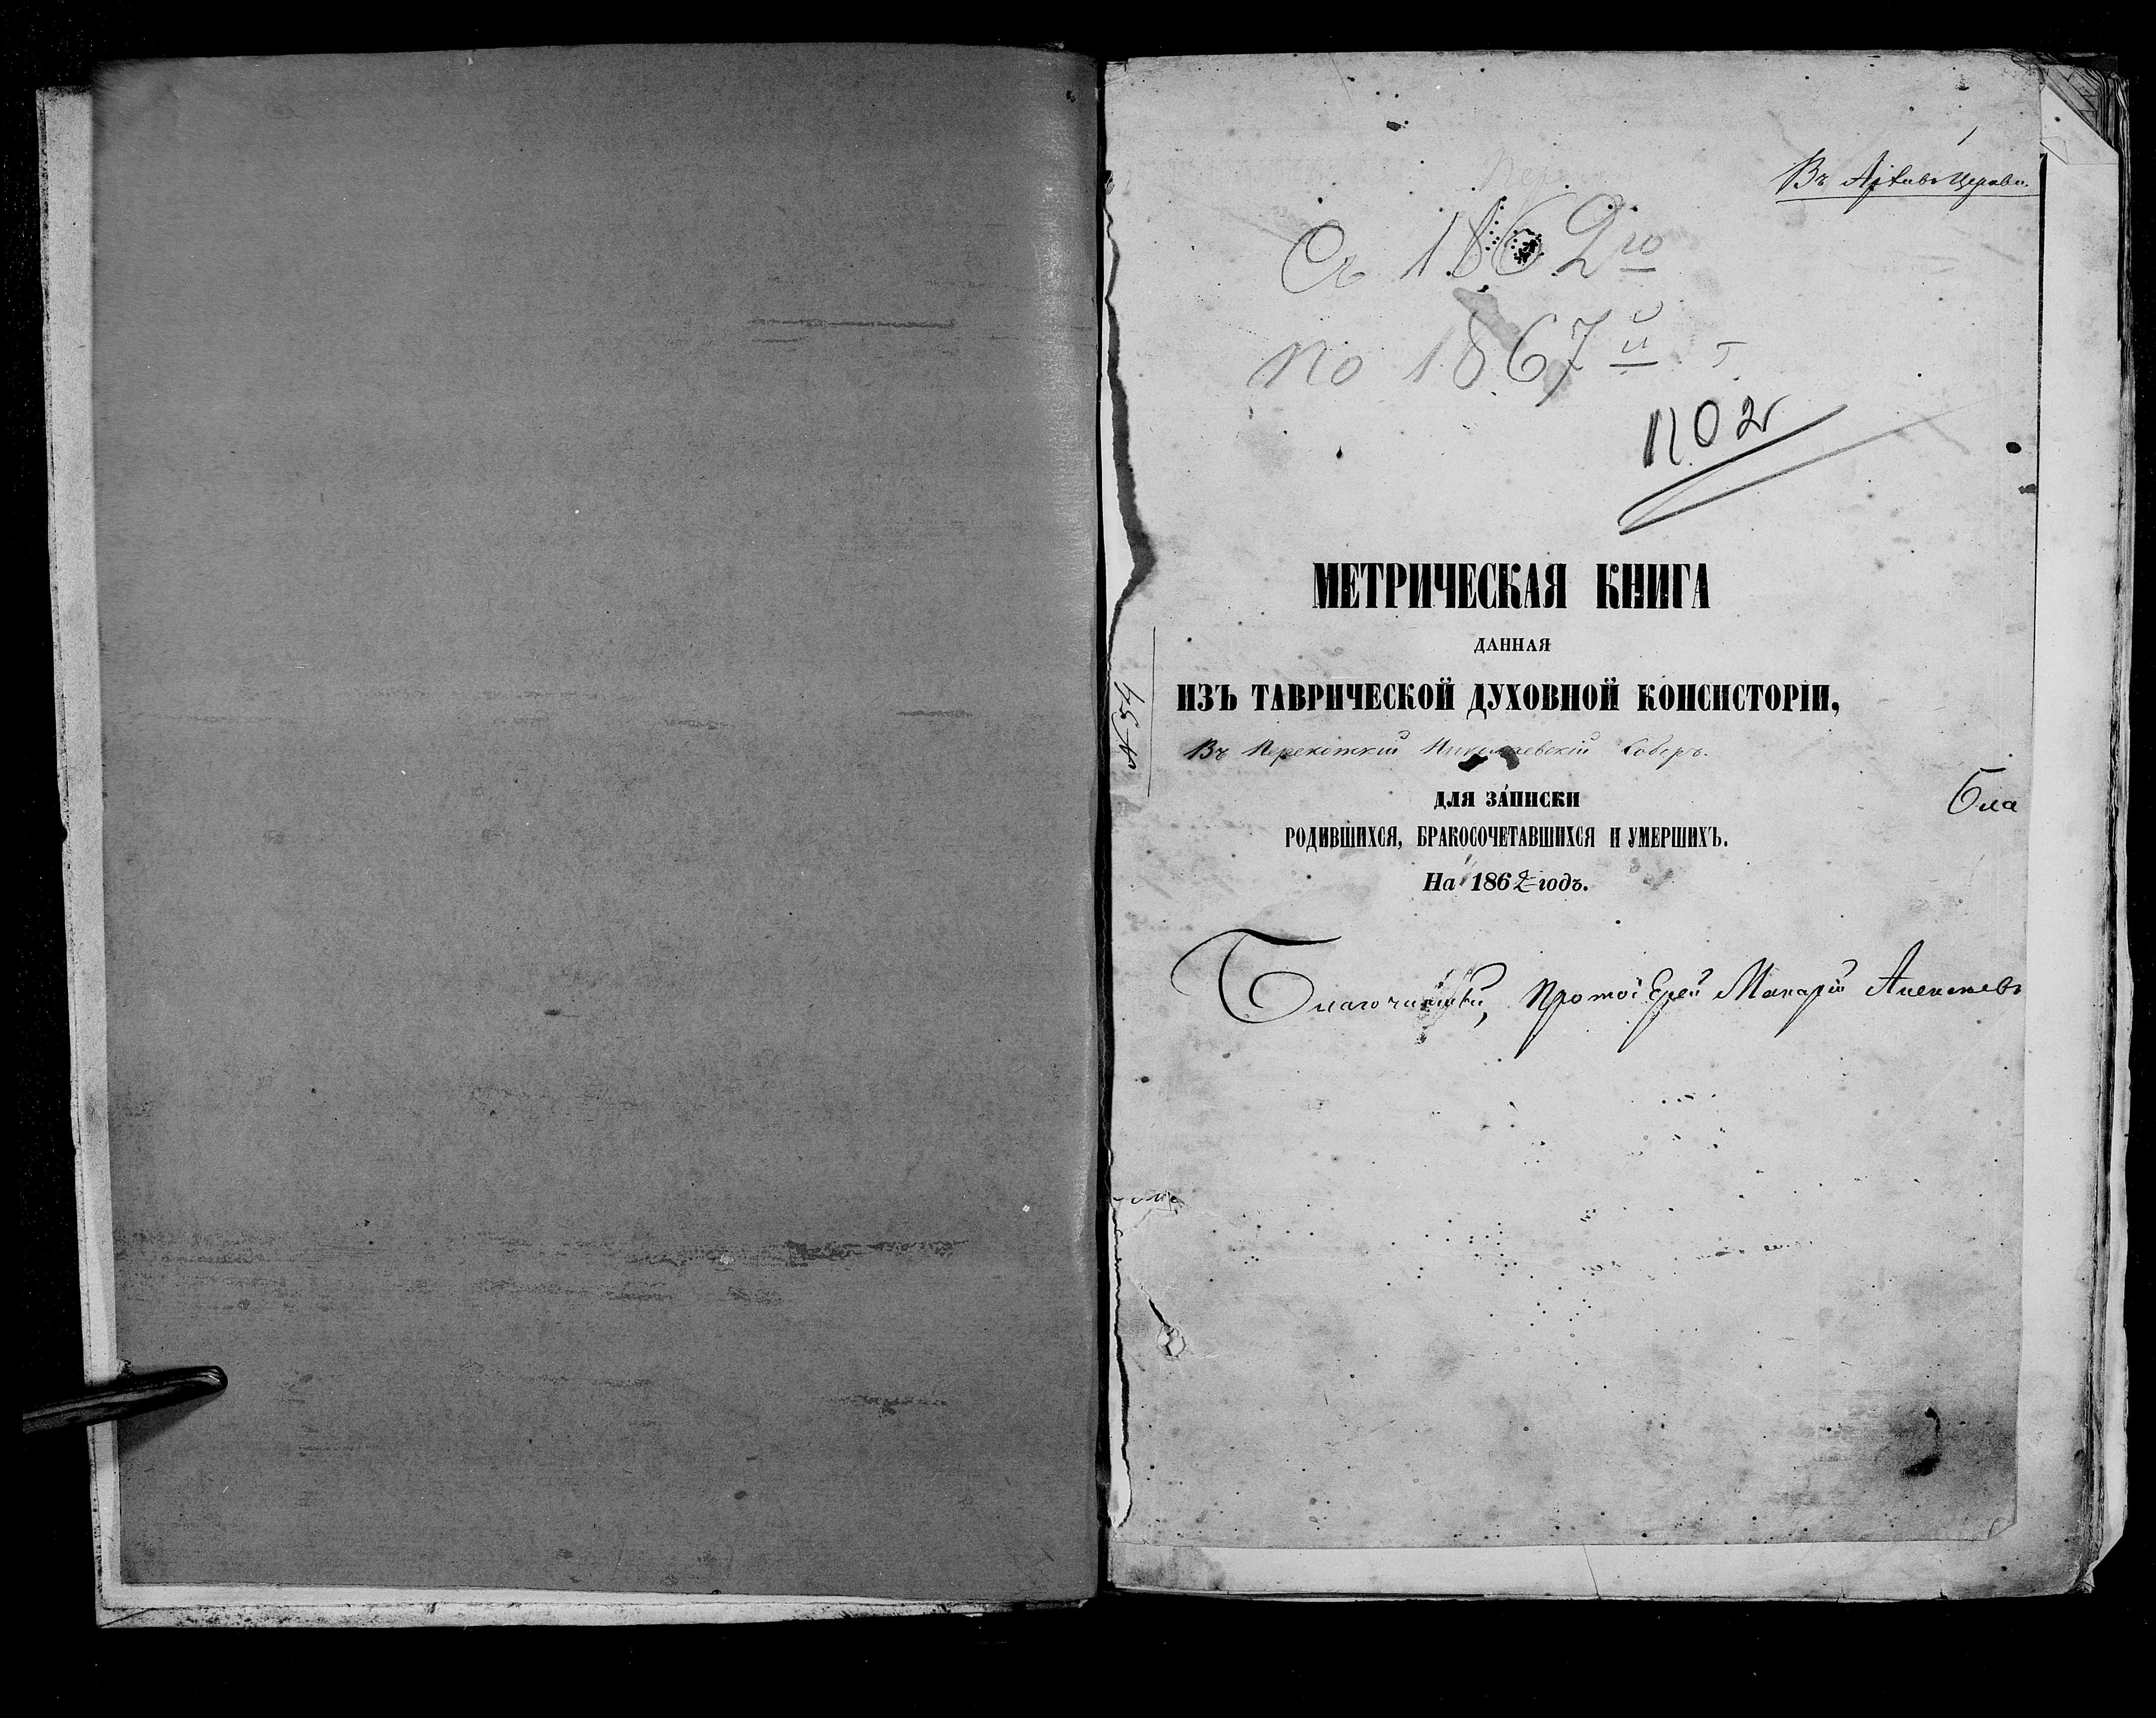 Въ Архивъ Церкви.
Съ 1862го
по 1867й г
по 2
МЕТРИЧЕСКАЯ КНИГА
ДАННАЯ
ИЗЪ ТАВРИЧЕСКОЙ ДУХОВНОЙ КОНСИСТОРІИ,
Въ Перекопскій Николаевскій Соборъ.
ДЛЯ ЗАПИСКИ
Бла
РОДИВШИХСЯ, БРАКОСОЧЕТАВШИХСЯ И УМЕРШИХЪ.
На 1862 годъ.
Благочинный, Протоіерей Макарій